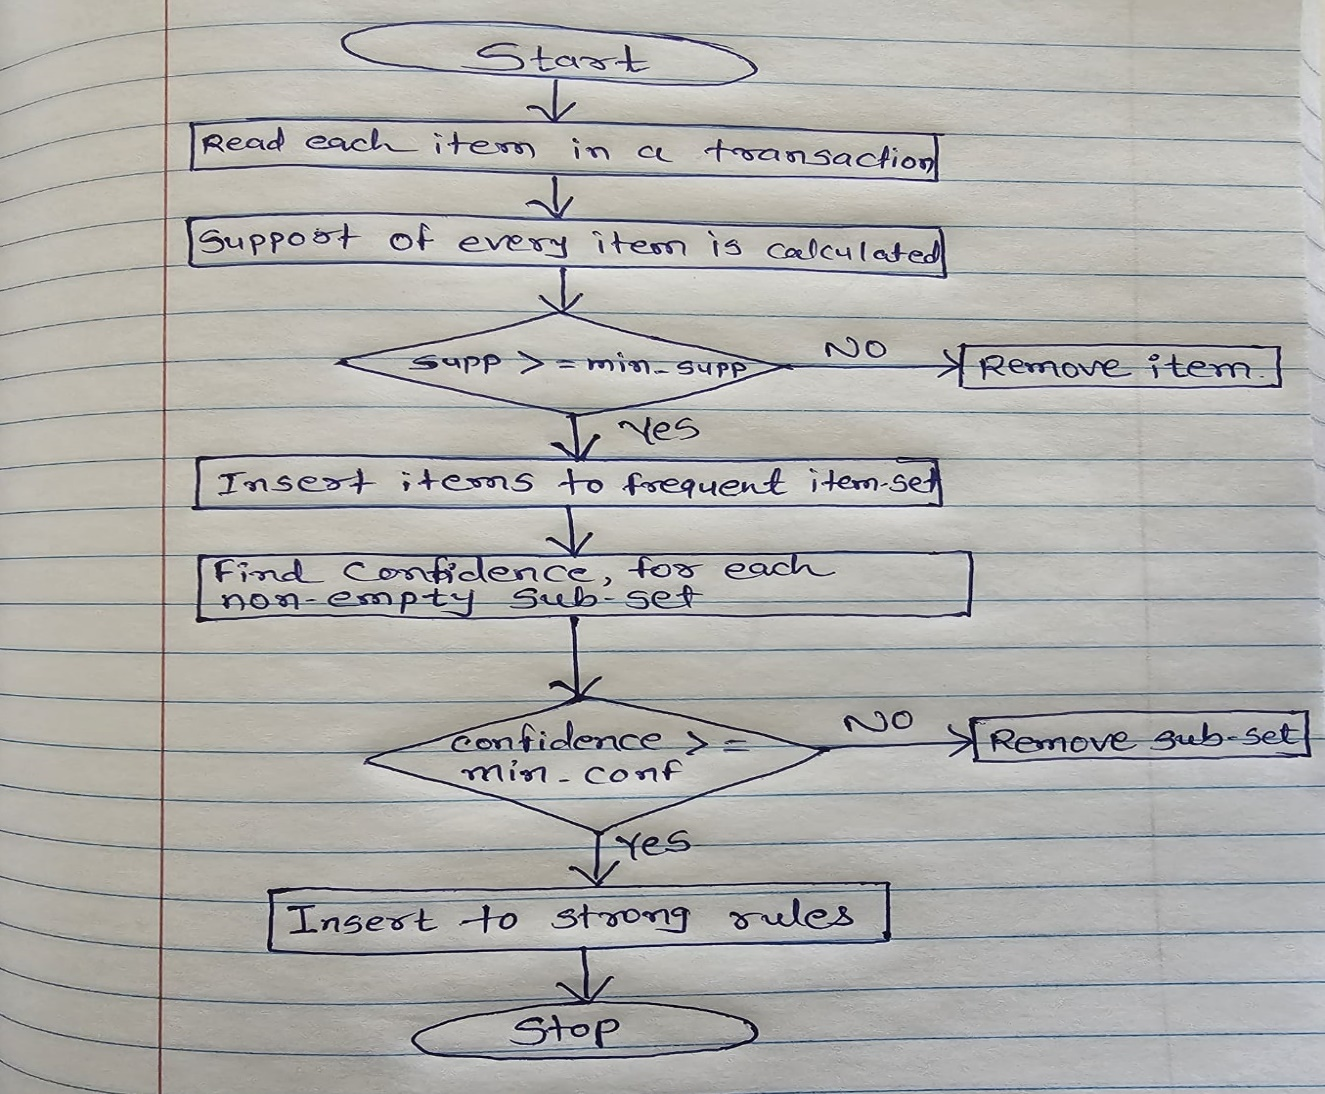 Start
Read each item in a transaction
Support of every item is calculated
supp >= min-supp
NO
Remove item.
Yes
Insert items to frequent item-set
Find Confidence, for each
non-empty Sub-set
confidence >=
min-conf
NO
Remove sub-set
Yes
Insert to strong rules
Stop